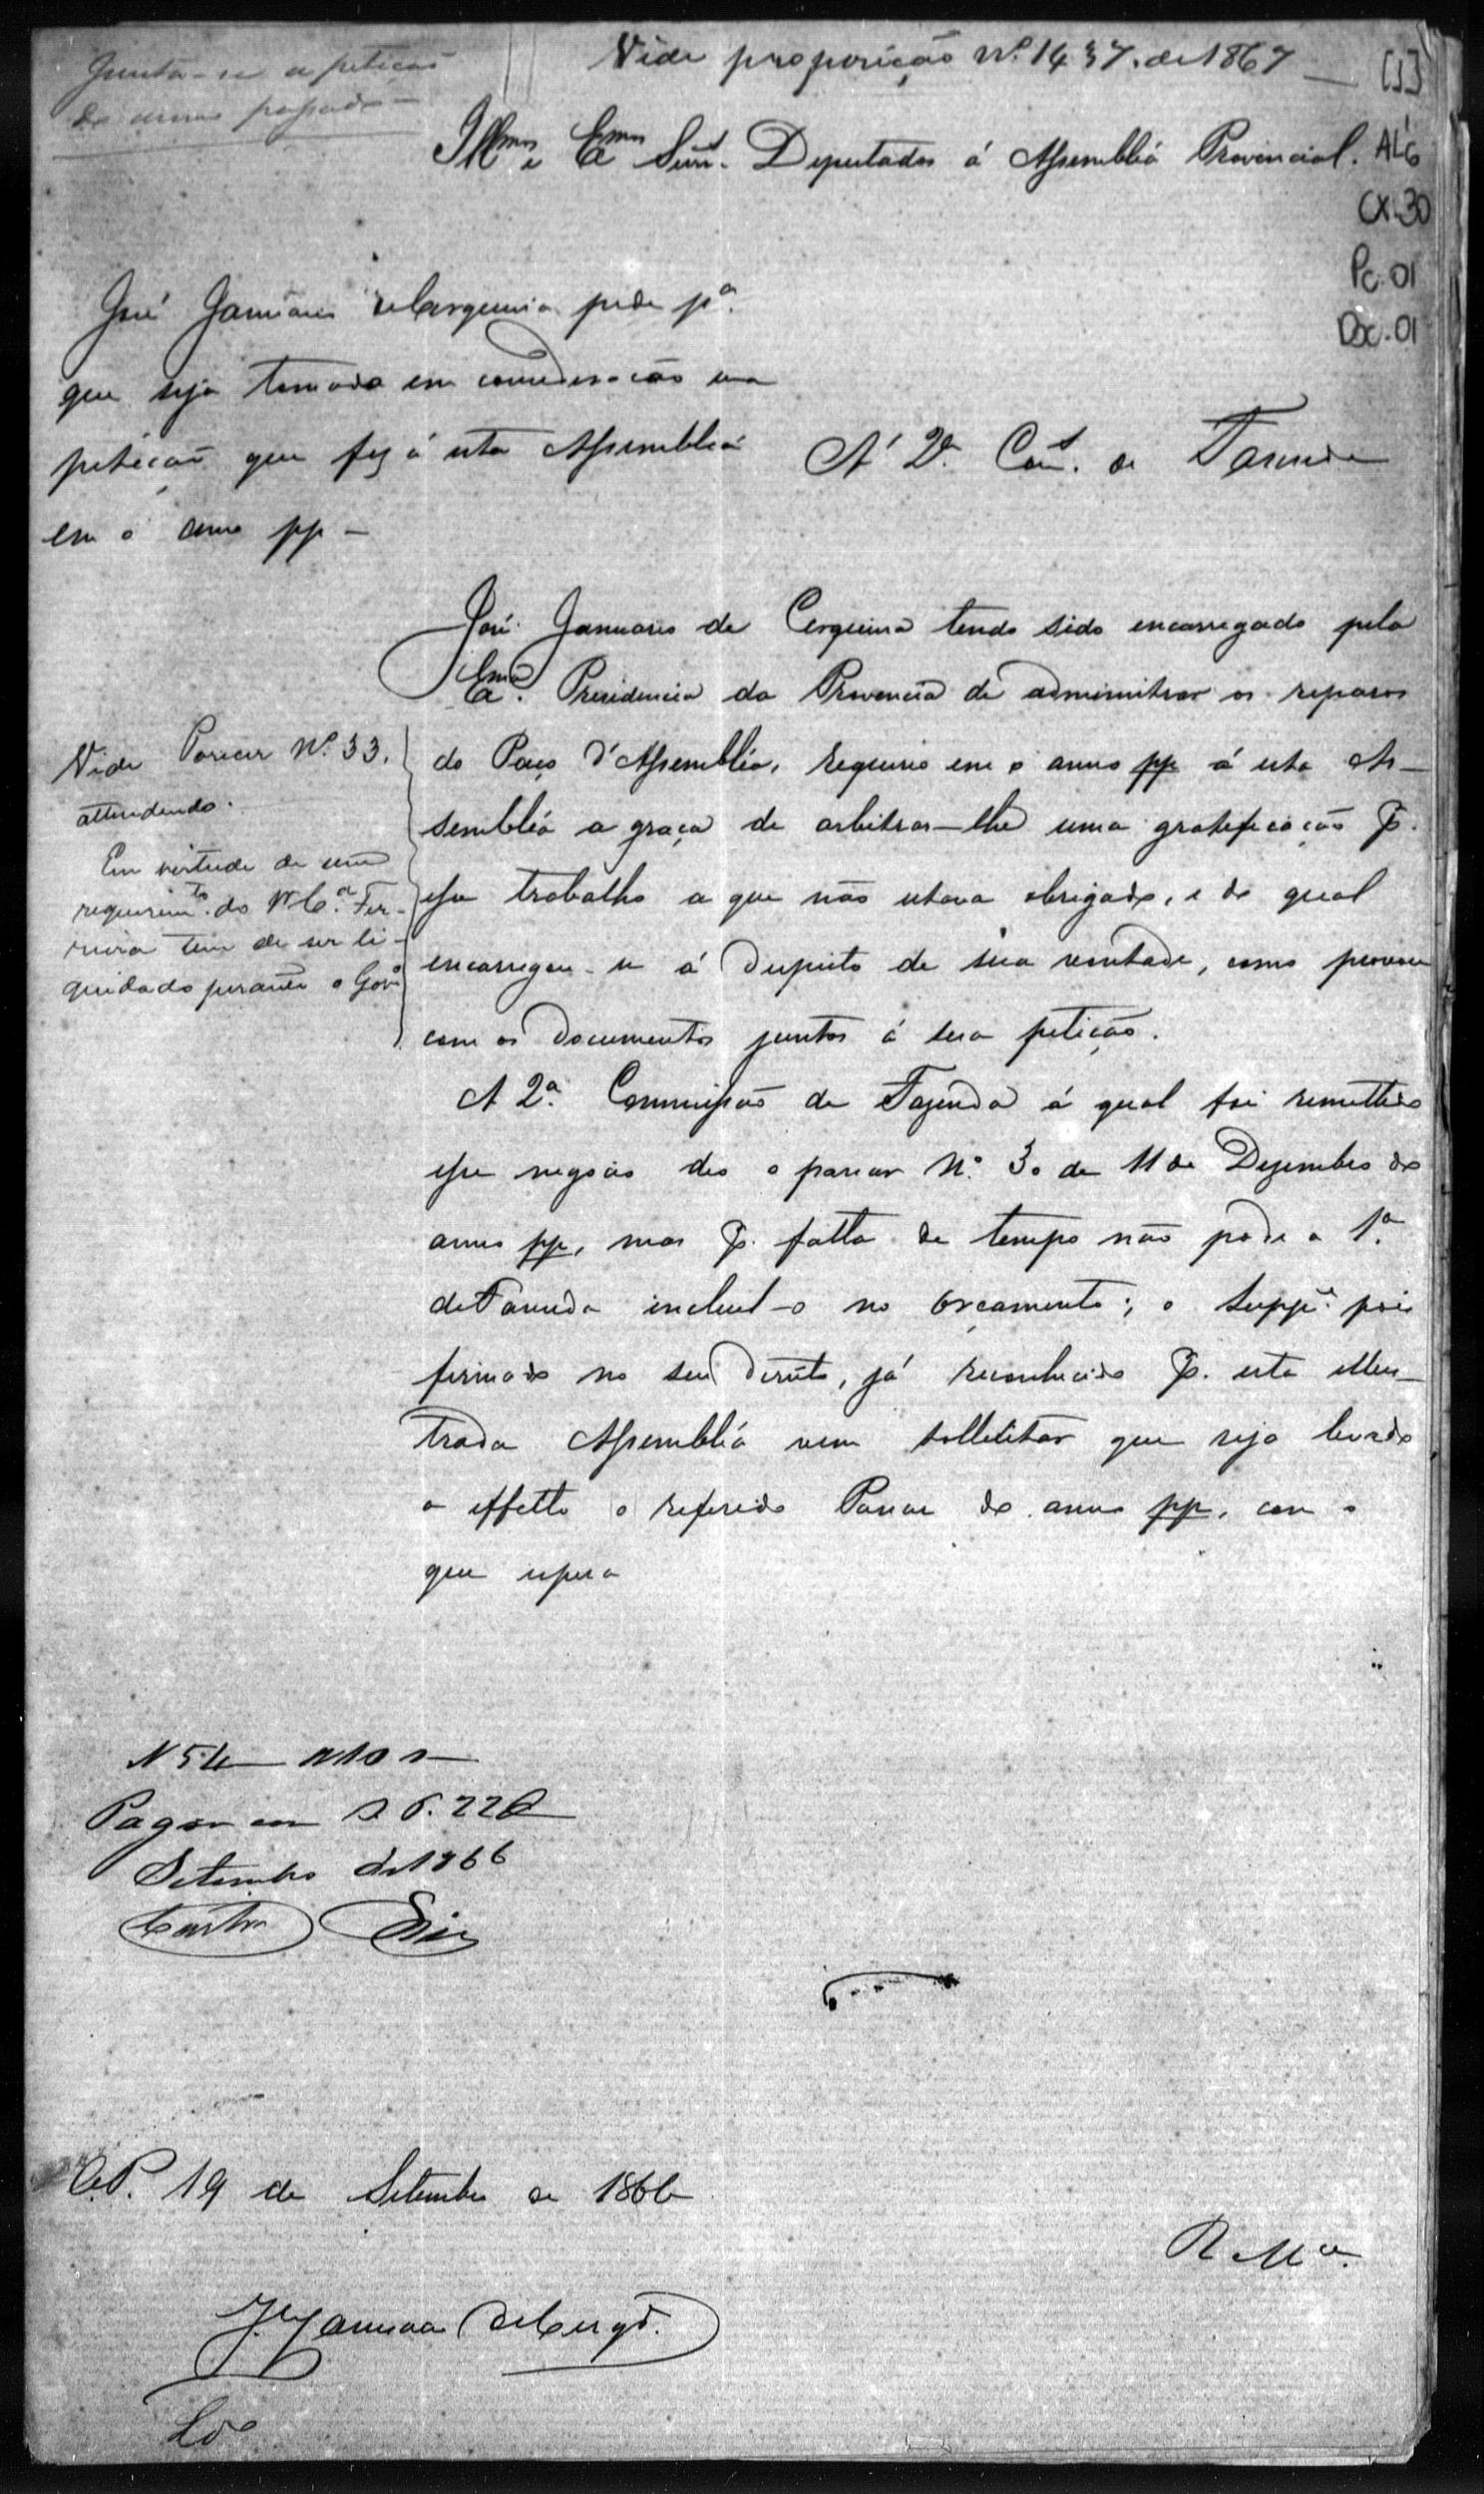 Junta-se a petição
do anno passado
Vide proposição Nº 1437. de 1867
[1]
Illmos e Exmos Senrs. Deputados á Assembléa Provincial.
AL6
CX.30
Pc.01
Doc.01
José Januario Cerqueira pede pª.
que seja tomada em consideração uma
petição que fez á esta Assembléa
em o anno pp -
A' 2ª. Com. de Fazenda
José Januario de Cerqueira tendo sido encarregado pela
Exmª. Presidencia da Provencia de administrar os reparos
do Paço d'Assembléa, requereu em o anno pp á esta As-
sembléa a graça de arbitrar-lhe uma gratificação p.
esse trabalho a que não estava obrigado, e do qual
encarregou-se á despeito de sua vontade, como provou
com os documentos juntos á sua petição.
A 2ª. Commissão de Fazenda á qual foi remettido
esse negocio deo o parecer Nº. 30 de 11 de Dezembro do
anno pp, mas p. falta de tempo não pode a 1ª.
de Fazenda incluil-o no orçamento; o Suppe. pois
firmado no seu direito, já reconhecido p. esta Illus-
trada Assembléa vem sollicitar que seja levado
a effeito o referido Parecer do anno pp, com o
que espera
Vide Parecer Nº 33.
attendendo.
Em virtude de um
requerimto. do Fer-
reira tem de ser li-
quidado perante o Govº
Pagou
Setembro de 1866
Castro
19 de Setembro de 1866
R. Mce.
J. Januario de Cerqª.